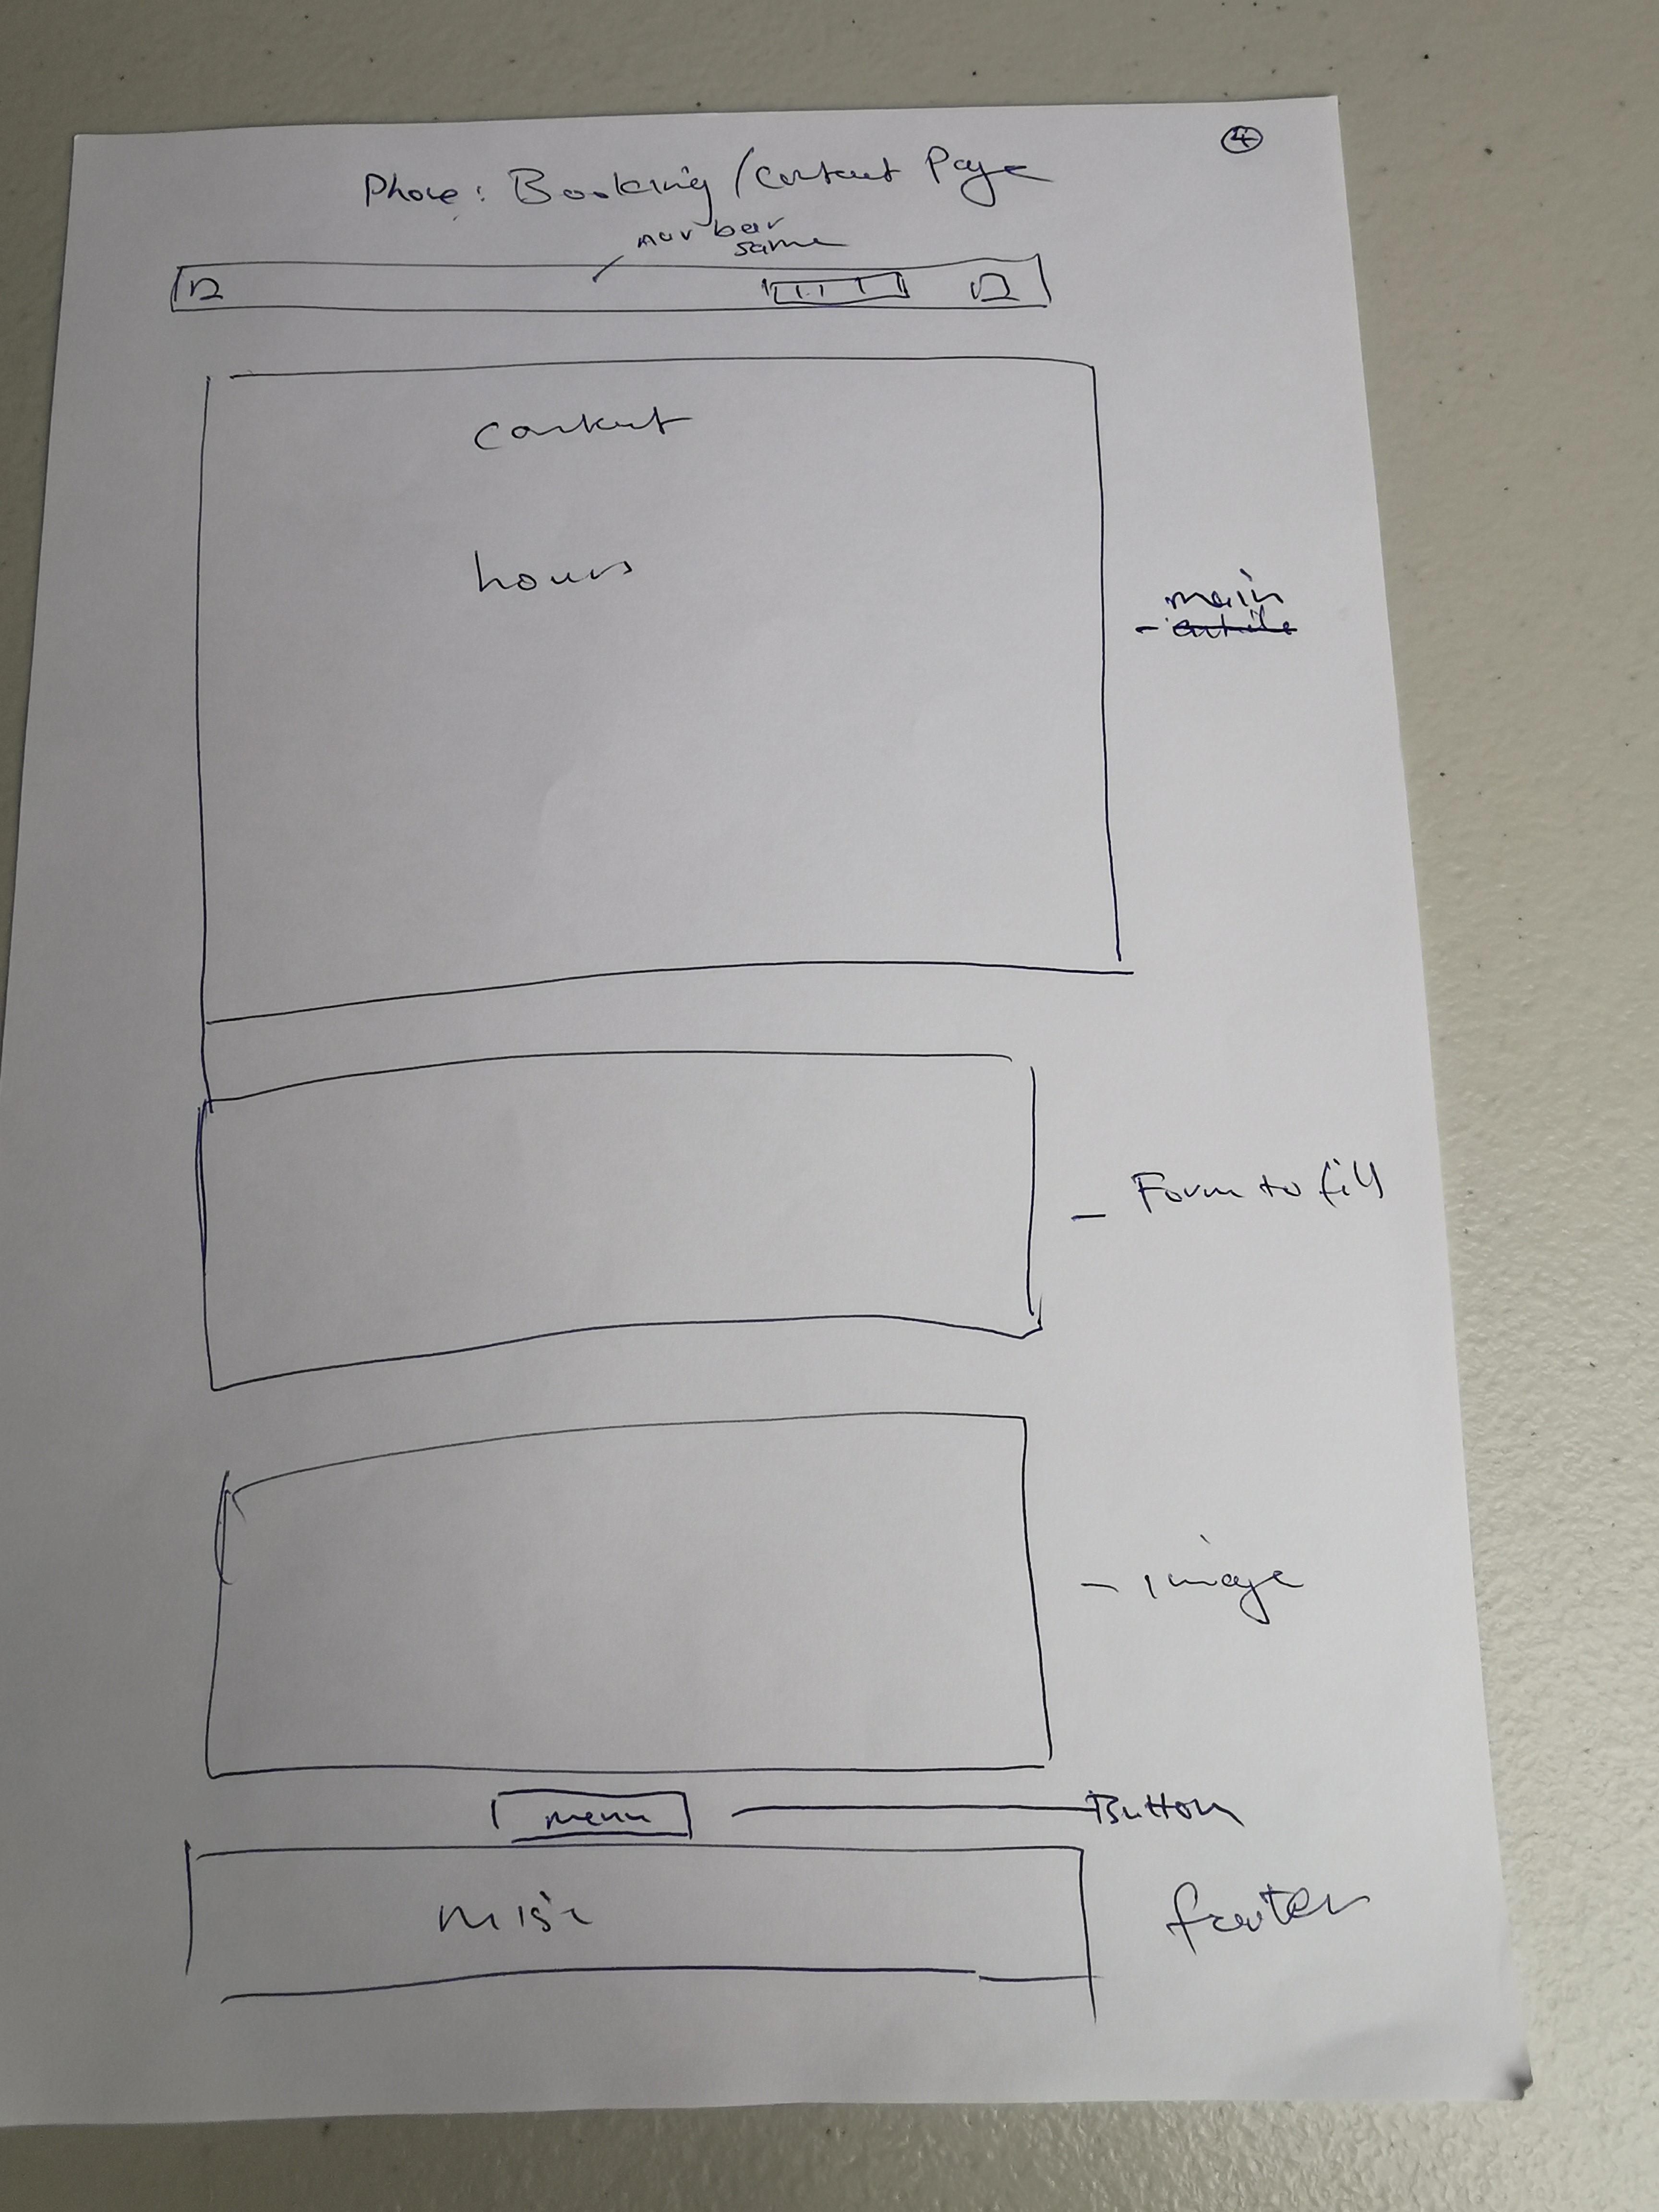 4
Phone: Booking/Contact Page
nav bar
same
contact
hours
main
- article
- Form to fill
- image
menu
Button
misc
footer